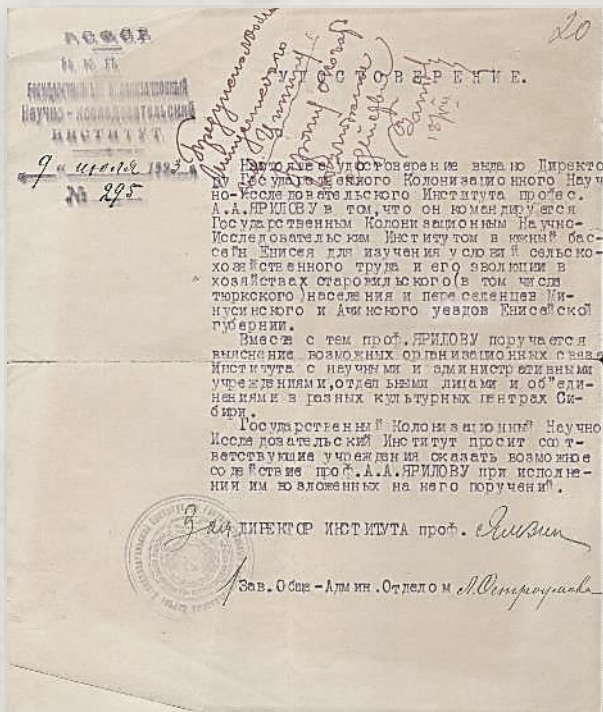 20
Р.С.Ф.С.Р.
Н.К.П.
ГОСУДАРСТВЕННЫЙ КОЛОНИЗАЦИОННЫЙ
Научно-Исследовательский
ИНСТИТУТ.
9 июля 1923
№ 295
УДОСТОВЕРЕНИЕ.
Настоящее удостоверение выдано Директо-
ру Государственного Колонизационного Науч-
но-Исследовательского Института профес.
А.А.ЯРИЛОВУ в том, что он командируется
Государственным Колонизационным Научно-
Исследовательским Институтом в южный бас-
сейн Енисея для изучения условий сельско-
хозяйственного труда и его эволюции в
хозяйствах старожильского(в том числе
тюркского)населения и переселенцев Ми-
нусинского и Ачинского уездов Енисейской
губернии.
Вместе с тем проф.ЯРИЛОВУ поручается
выяснение возможных организационных связе
Института с научными и административными
учреждениями,отдельными лицами и об"еди-
нениями в разных культурных центрах Си-
бири.
Государственный Колонизационный Научно
Исследовательский Институт просит соот-
ветствующие учреждения оказать возможное
содействие проф.А.А.ЯРИЛОВУ при исполне-
нии им возложенных на него поручений.
Зам ДИРЕКТОР ИНСТИТУТА проф. Ямзин
Зав.Обще-Админ.Отделом